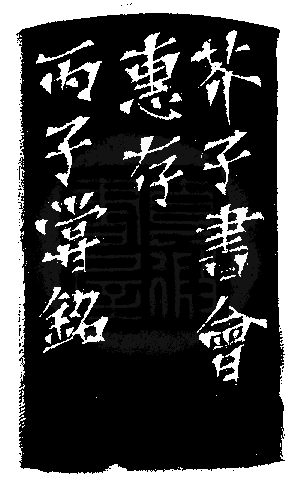 芥子書會
惠存
丙子銘